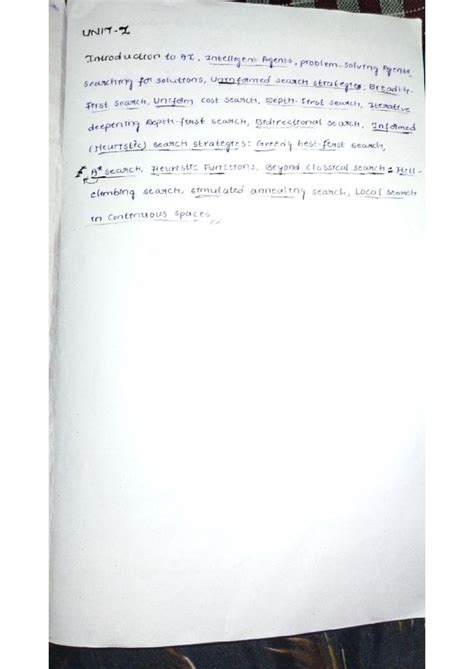 UNIT-I
Introduction to AI, Intelligent Agents, problem-Solving Agents,
searching for solutions, Uninformed search strategies: Breadth-
First search, Uniform cost search, Depth-first search, Iterative
deepening Depth-first search, Bidirectional search, Informed
(Heuristic) search strategies: Greedy best-first search,
A* search, Heuristic Functions, Beyond classical search: Hill-
climbing search, simulated annealing search, Local search
in Continuous spaces.